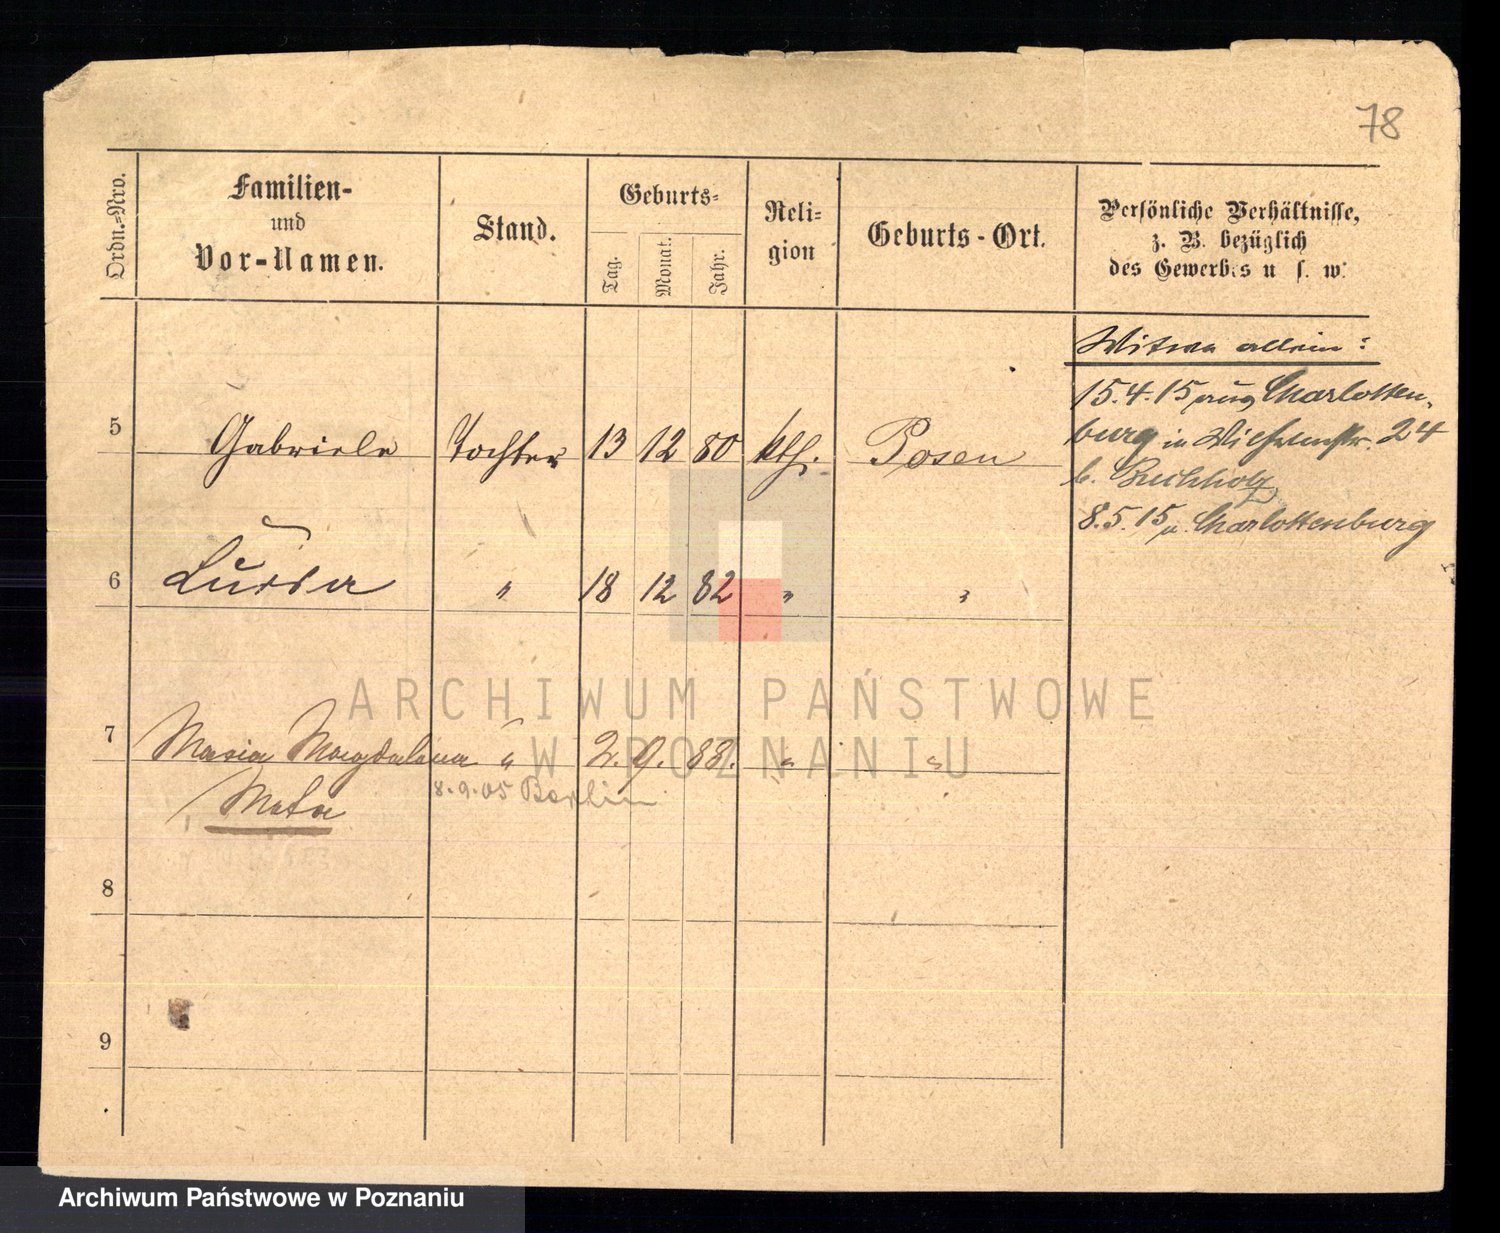 78
Ordn.-Nro.
Familien-
und
Vor-Namen.
Stand.
Geburts-
Tag.
Monat.
Jahr.
Reli-
gion
Geburts-Ort.
Persönliche Verhältnisse,
z. B. bezüglich
des Gewerbes u. s. w.
Witwe allein:
15.4.15 aus Charlotten-
burg in Wilhelmstr. 24
b. Buchholz
8.5.15 n. Charlottenburg
5 Gabriele Tochter 13 12 80 kth. Posen
6 Luisa " 18 12 82 " "
7 Maria Magdalena " 2. 9. 88. " "
Meta 8.9.05 Berlin
8
9
ARCHIWUM PAŃSTWOWE
W POZNANIU
Archiwum Państwowe w Poznaniu